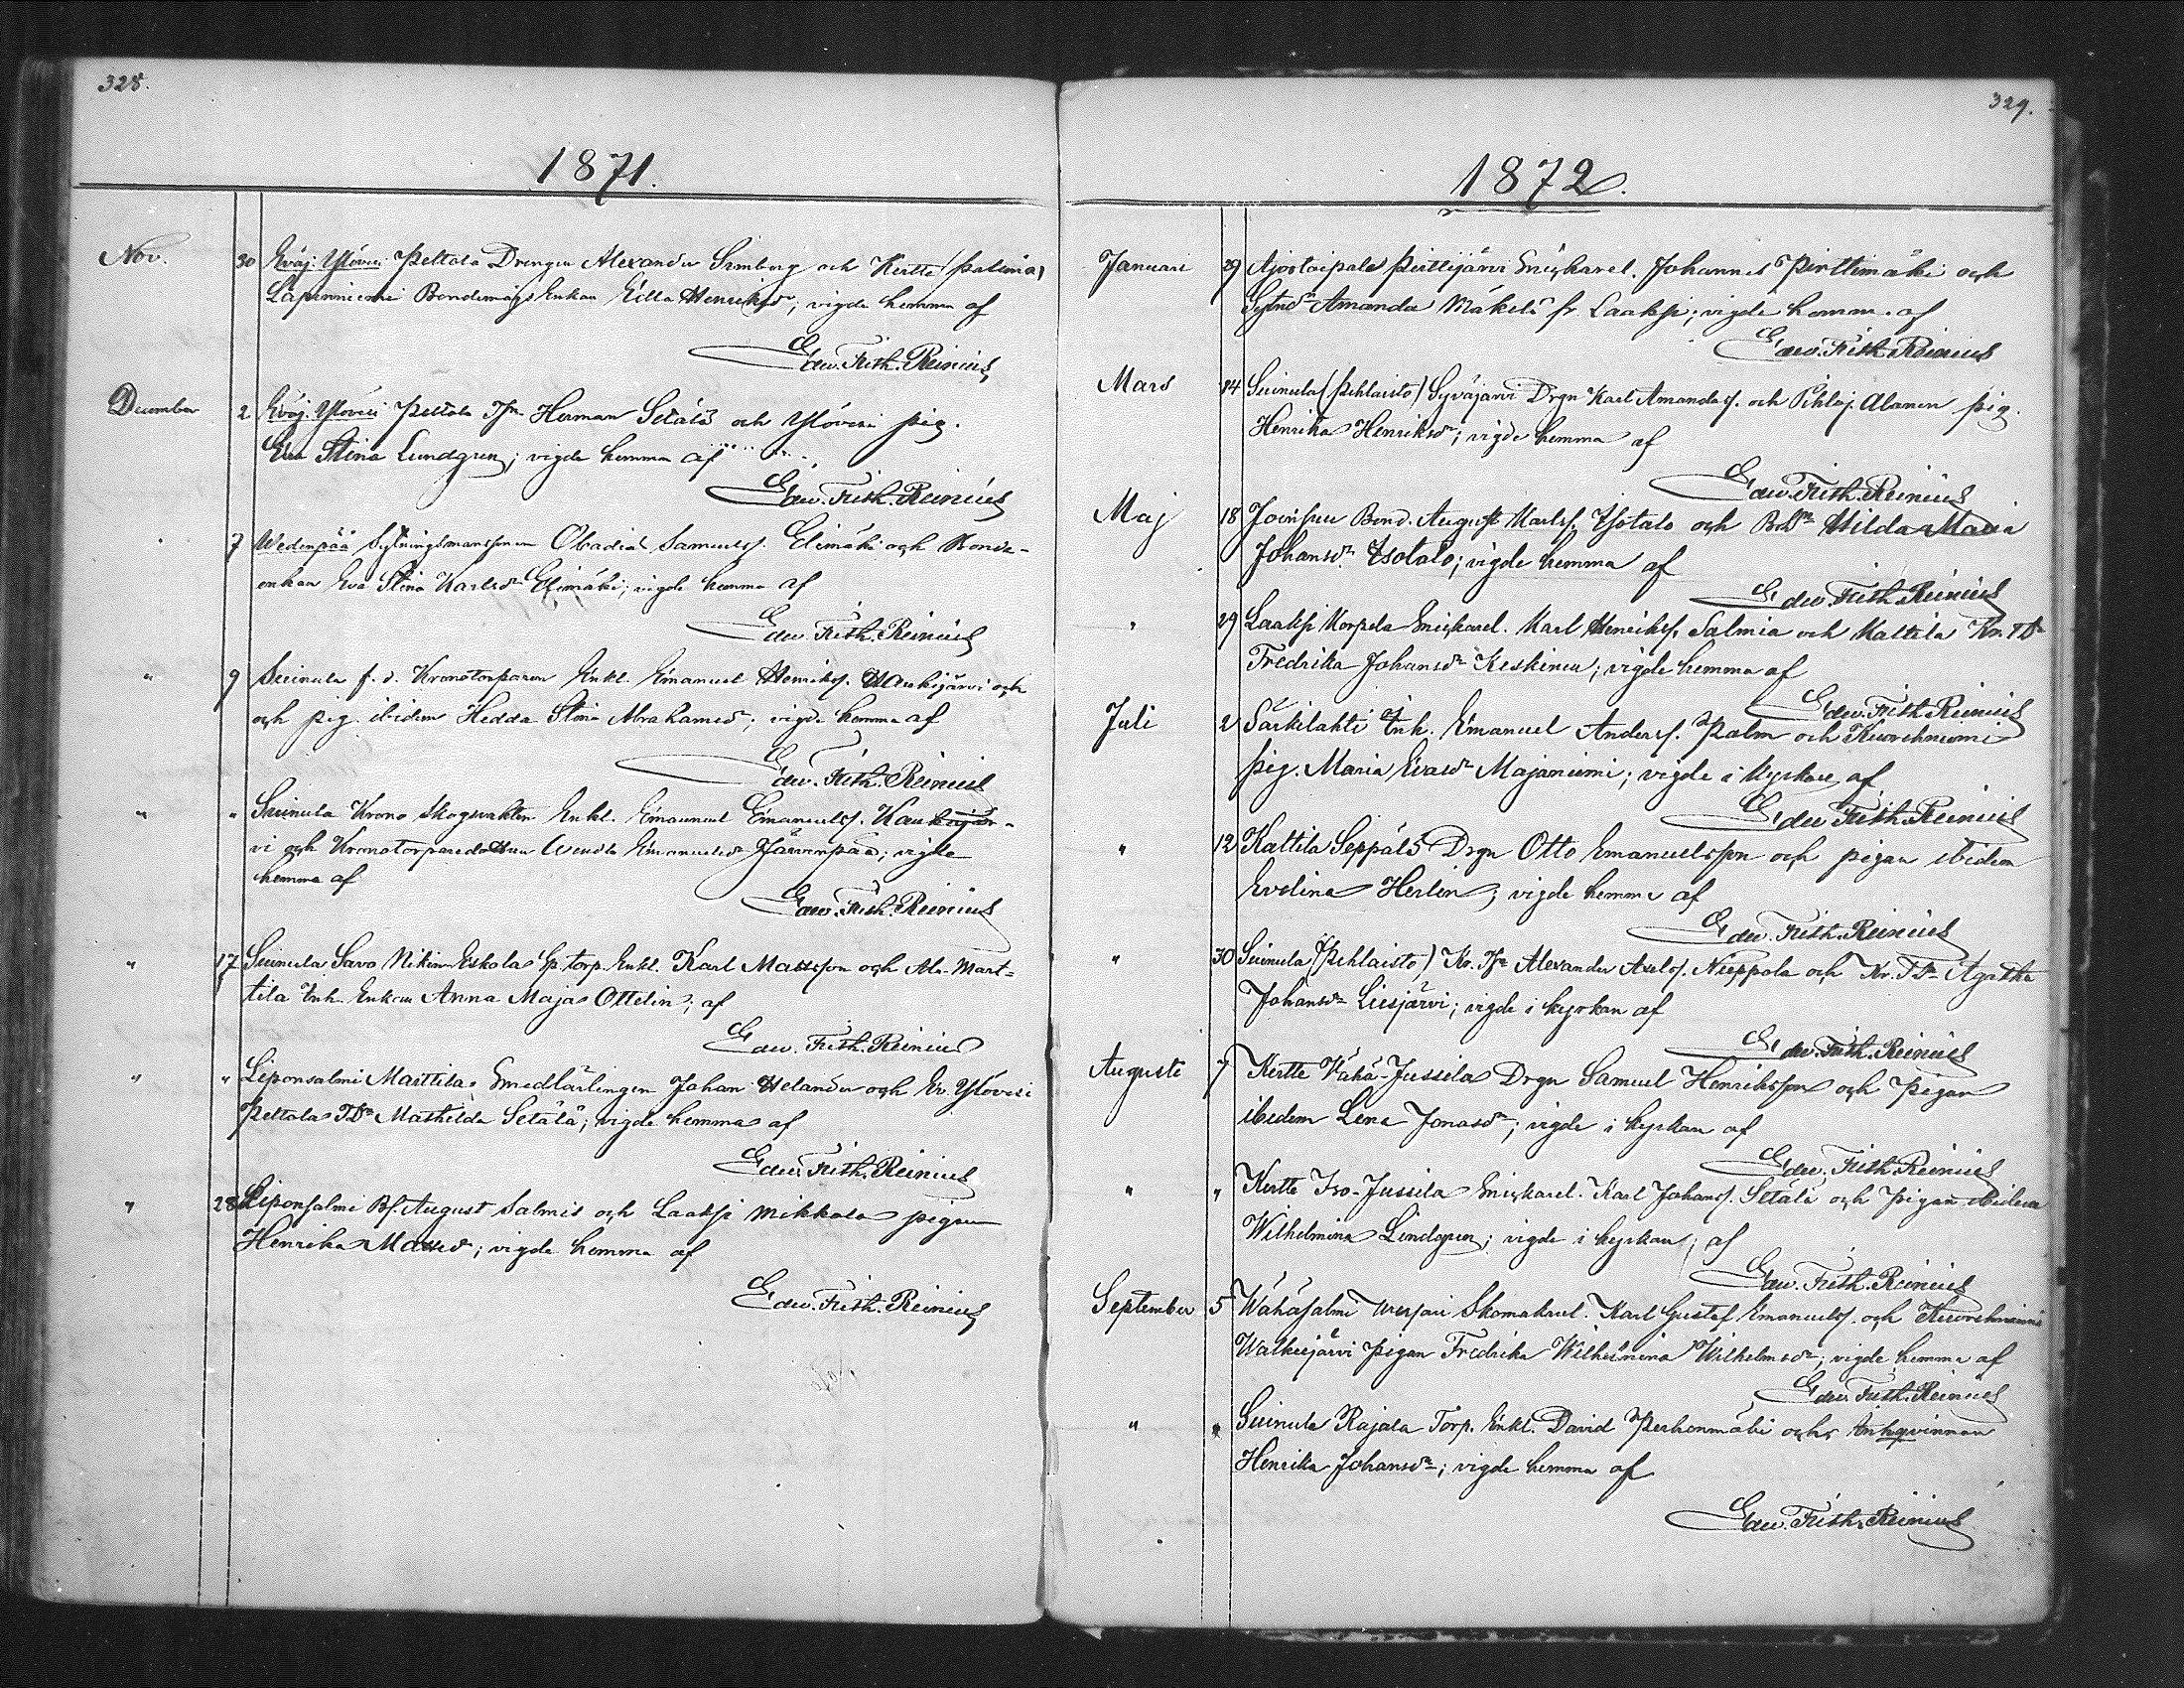 328.
1871.
Nov. 30 Kväj. Ylöviri Peltola Drengen Alexander Simberg och Kertte (Patinia)
Lapinniemi Bondemågs Enkan Edla Henriksdr; vigde hemma af
Edw. Frith. Reinius
December 2 Kväj. Ylöviri Peltola Tfn Herman Setälä och Ylöviri pig.
Eva Stina Lundgren; vigde hemma af
Edw. Frith. Reinius
7 Wedenpää Sytningsmanssonen Obadias Samuelss. Elimäki och Bonde-
enkan Eva Stina Karlsdr Elimäki; vigde hemma af
Edw. Frith. Reinius
" 9 Suinula f. d. Kronotorparen Enkl. Emanuel Henrikss. Haukijärvi och
och pig. ibidem Hedda Stina Abrahamsdr; vigde hemma af
Edw. Frith. Reinius
" " Suinula Krono Skogvakten Enkl. Emanuel Emanuelss. Haukijär-
vi och Kronotorparedottren Wendla Emanuelsdr Järvenpää; vigde
hemma af
Edw. Frith. Reinius
" 17 Suinula Savo Nikin Eskola Sp. torp. Enkl. Karl Mattsson och Al. Mart-
tila Inh. Enkan Anna Maja Ottelin; af
Edw. Frith. Reinius
" " Leponsalmi Marttila, Smedlärlingen Johan Helander och Kv. Ylöviri
Peltola TDr Mathilda Setälä; vigde hemma af
Edw. Frith. Reinius
" 28 Leponsalmi Bs. August Salmis och Laakso Mikkola pigan
Henrika Mattsdr; vigde hemma af
Edw. Frith. Reinius
329.
1872.
Januari 29 Ajostaipale Perttijärvi Snickarel. Johannes Perttimäki och
Sytnsdr Amanda Mäkelä fr. Laakso; vigde hemma af
Edw. Frith. Reinius
Mars 14 Suinula (Pehlaisto) Syväjärvi Drgn Karl Amandas. och Pihlaj. Alanen pig.
Henrika Henriksdr; vigde hemma af
Edw. Frith. Reinius
Maj 18 Joensuu Bond. August Karlss. Isotalo och BdDr Hilda Maria
Johansdr Isotalo; vigde hemma af
Edw. Frith. Reinius
" 29 Laakso Korpela Snickarel. Karl Henrikss. Salmia och Kattila Kr. TDr
Fredrika Johansdr Keskinen; vigde hemma af
Edw. Frith. Reinius
Juli 2 Särkilahti Inh. Emanuel Anderss. Palm och Kuorehniemi
pig. Maria Evasdr Majaniemi; vigde i kyrkan af
Edw. Frith. Reinius
" 12 Kattila Seppälä Drgn Otto Emanuelsson och pigan ibidem
Evelina Herlin; vigde hemma af
Edw. Frith. Reinius
" 30 Suinula (Pehlaisto) Kr. Tfn Alexander Axelss. Nieppola och Kr. TDr Agatha
Johansdr Liesjärvi; vigde i kyrkan af
Edw. Frith. Reinius
Augusti 7 Kertte Vähä-Jussila Drgn Samuel Henriksson och pigan
ibidem Lena Jonasdr; vigde i kyrkan af
Edw. Frith. Reinius
" " Kertte Iso-Jussila Snickarel. Karl Johanss. Setälä och pigan ibidem
Wilhelmina Lindgren; vigde i kyrkan; af
Edw. Frith. Reinius
September 5 Wähäsalmi Skomakarel. Karl Gustaf Emanuelss. och Kuorehniemi
Walkeejärvi pigan Fredrika Wilhelmina Wilhelmsdr; vigde hemma af
Edw. Frith. Reinius
" " Suinula Rajala Torp. Enkl. David Perhonmäki och Inhqvinnan
Henrika Johansdr; vigde hemma af
Edw. Frith. Reinius